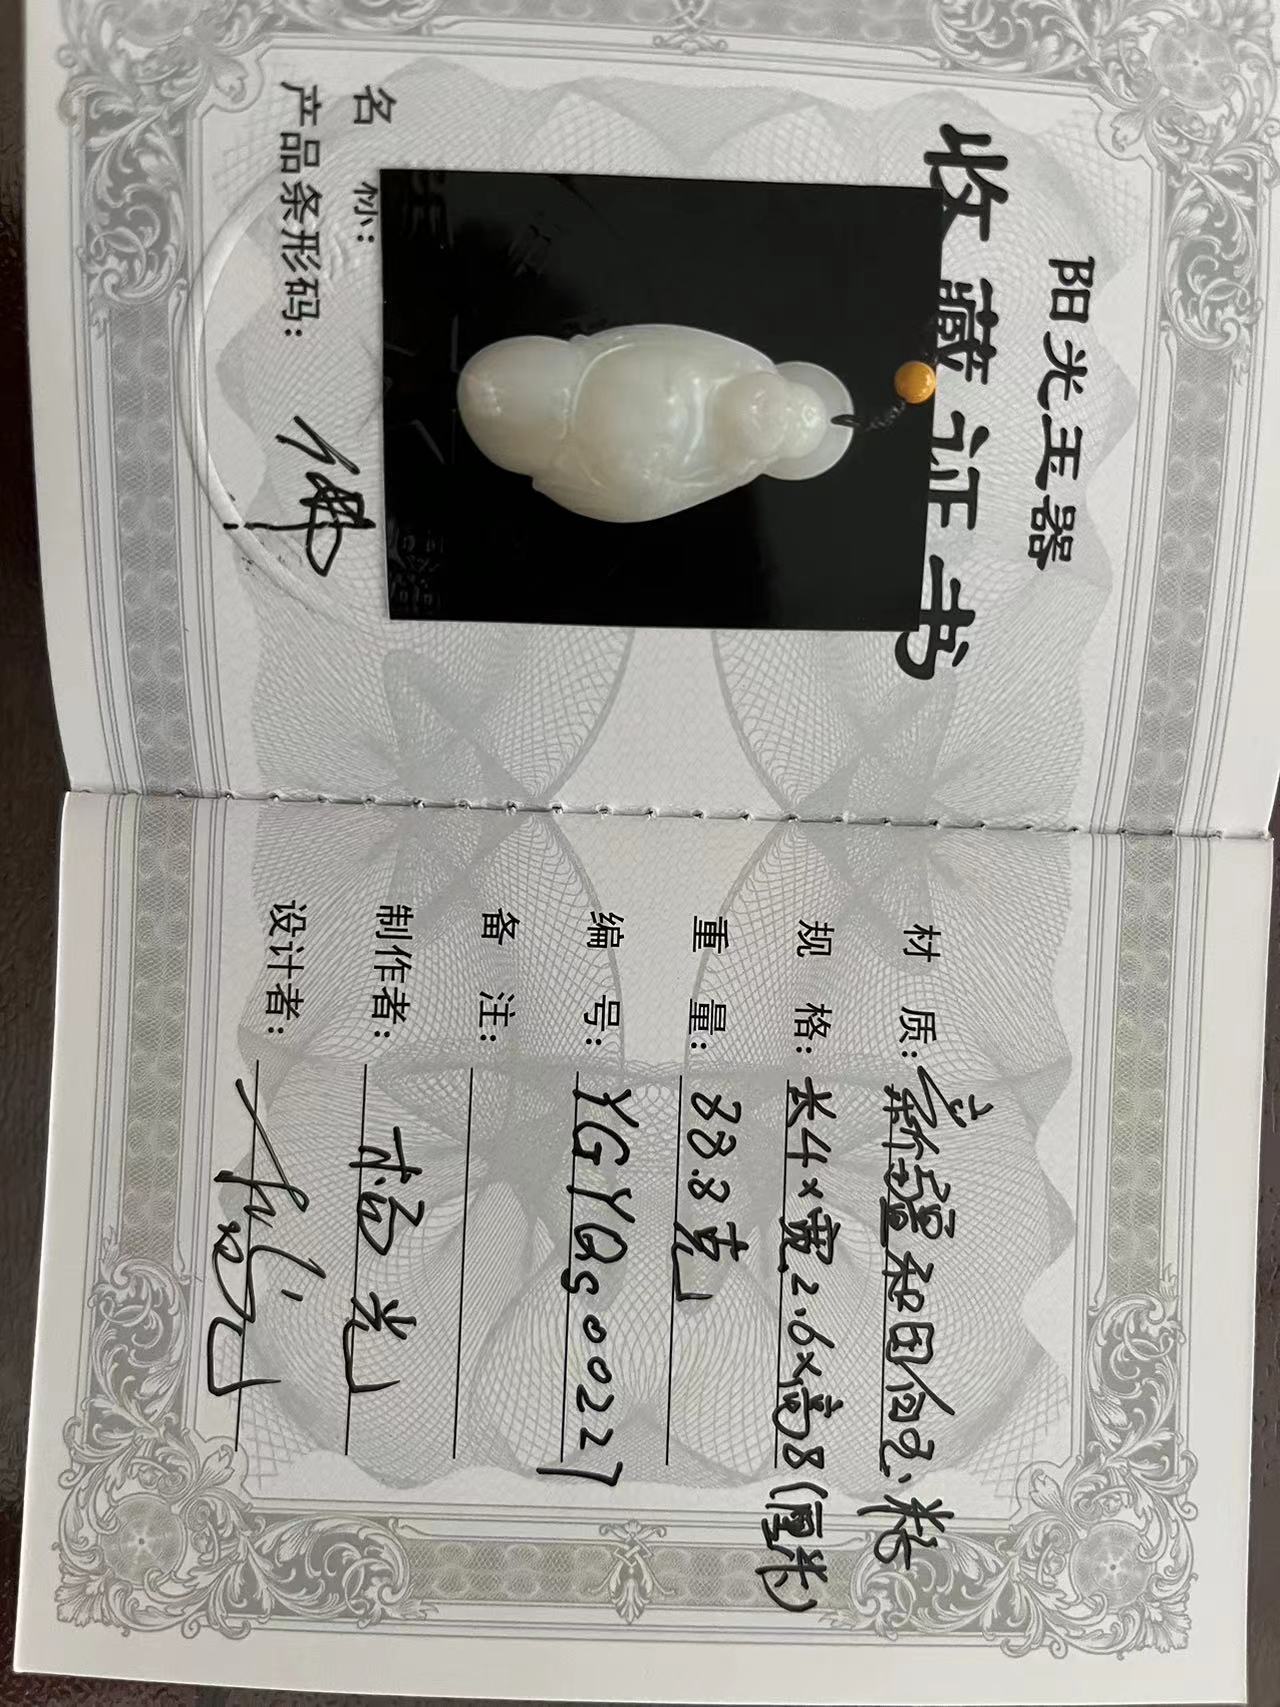 阳光玉器
收藏证书
名 称:
产品条形码: 佛
材 质: 新疆和田白玉:籽
规 格: 长4×宽2.6×高8(厘米)
重 量: 88.8克
编 号: YGYQS00227
备 注:
制作者: 杨光
设计者: